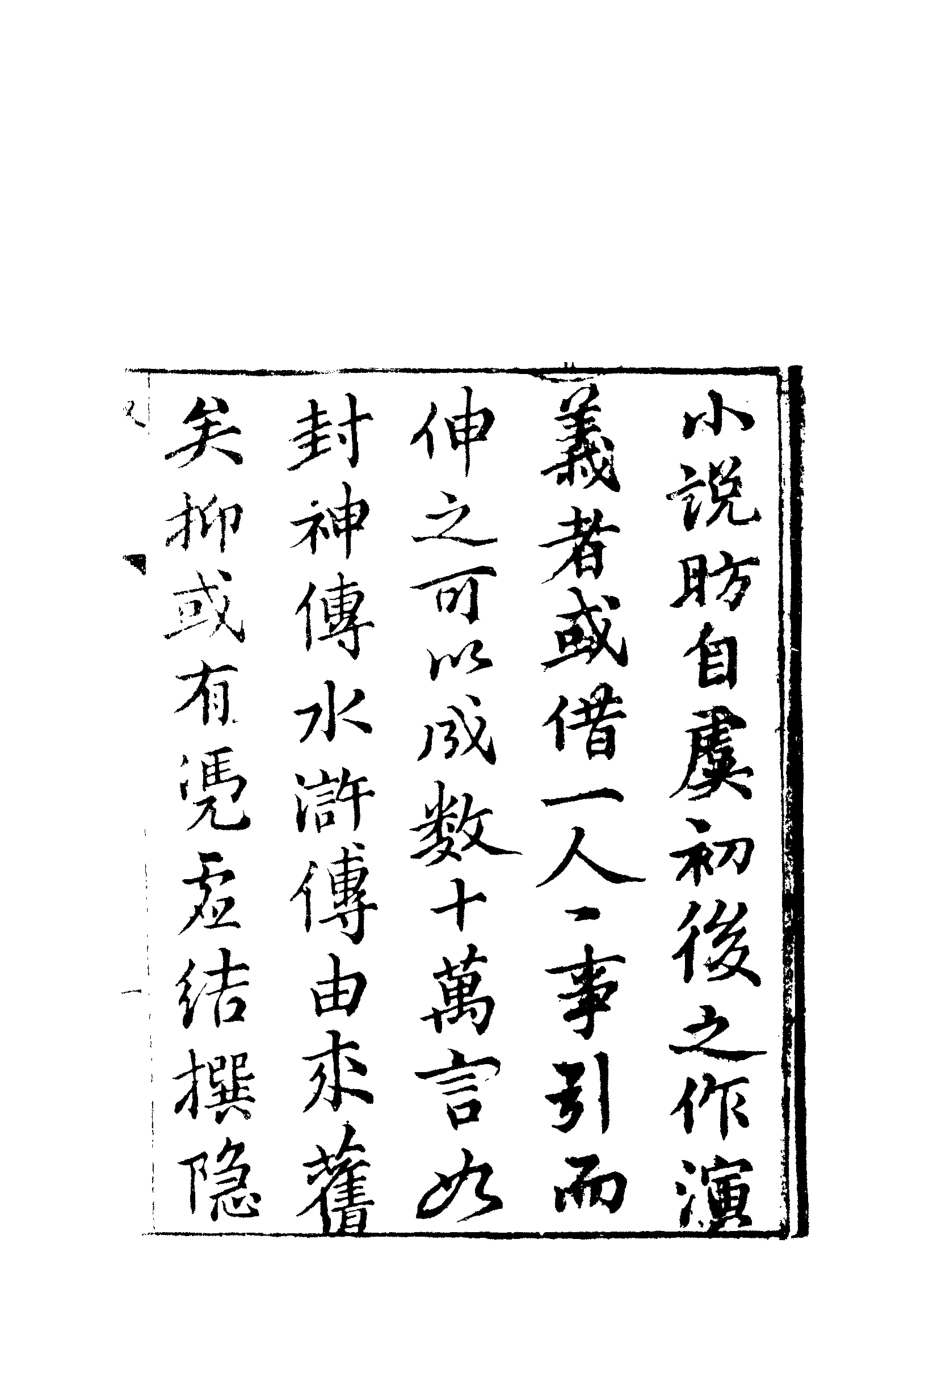 小説昉自虞初後之作演
義者或借一人一事引而
伸之可以成数十萬言如
封神傳水滸傳由来舊
矣抑或有憑虚結撰隐